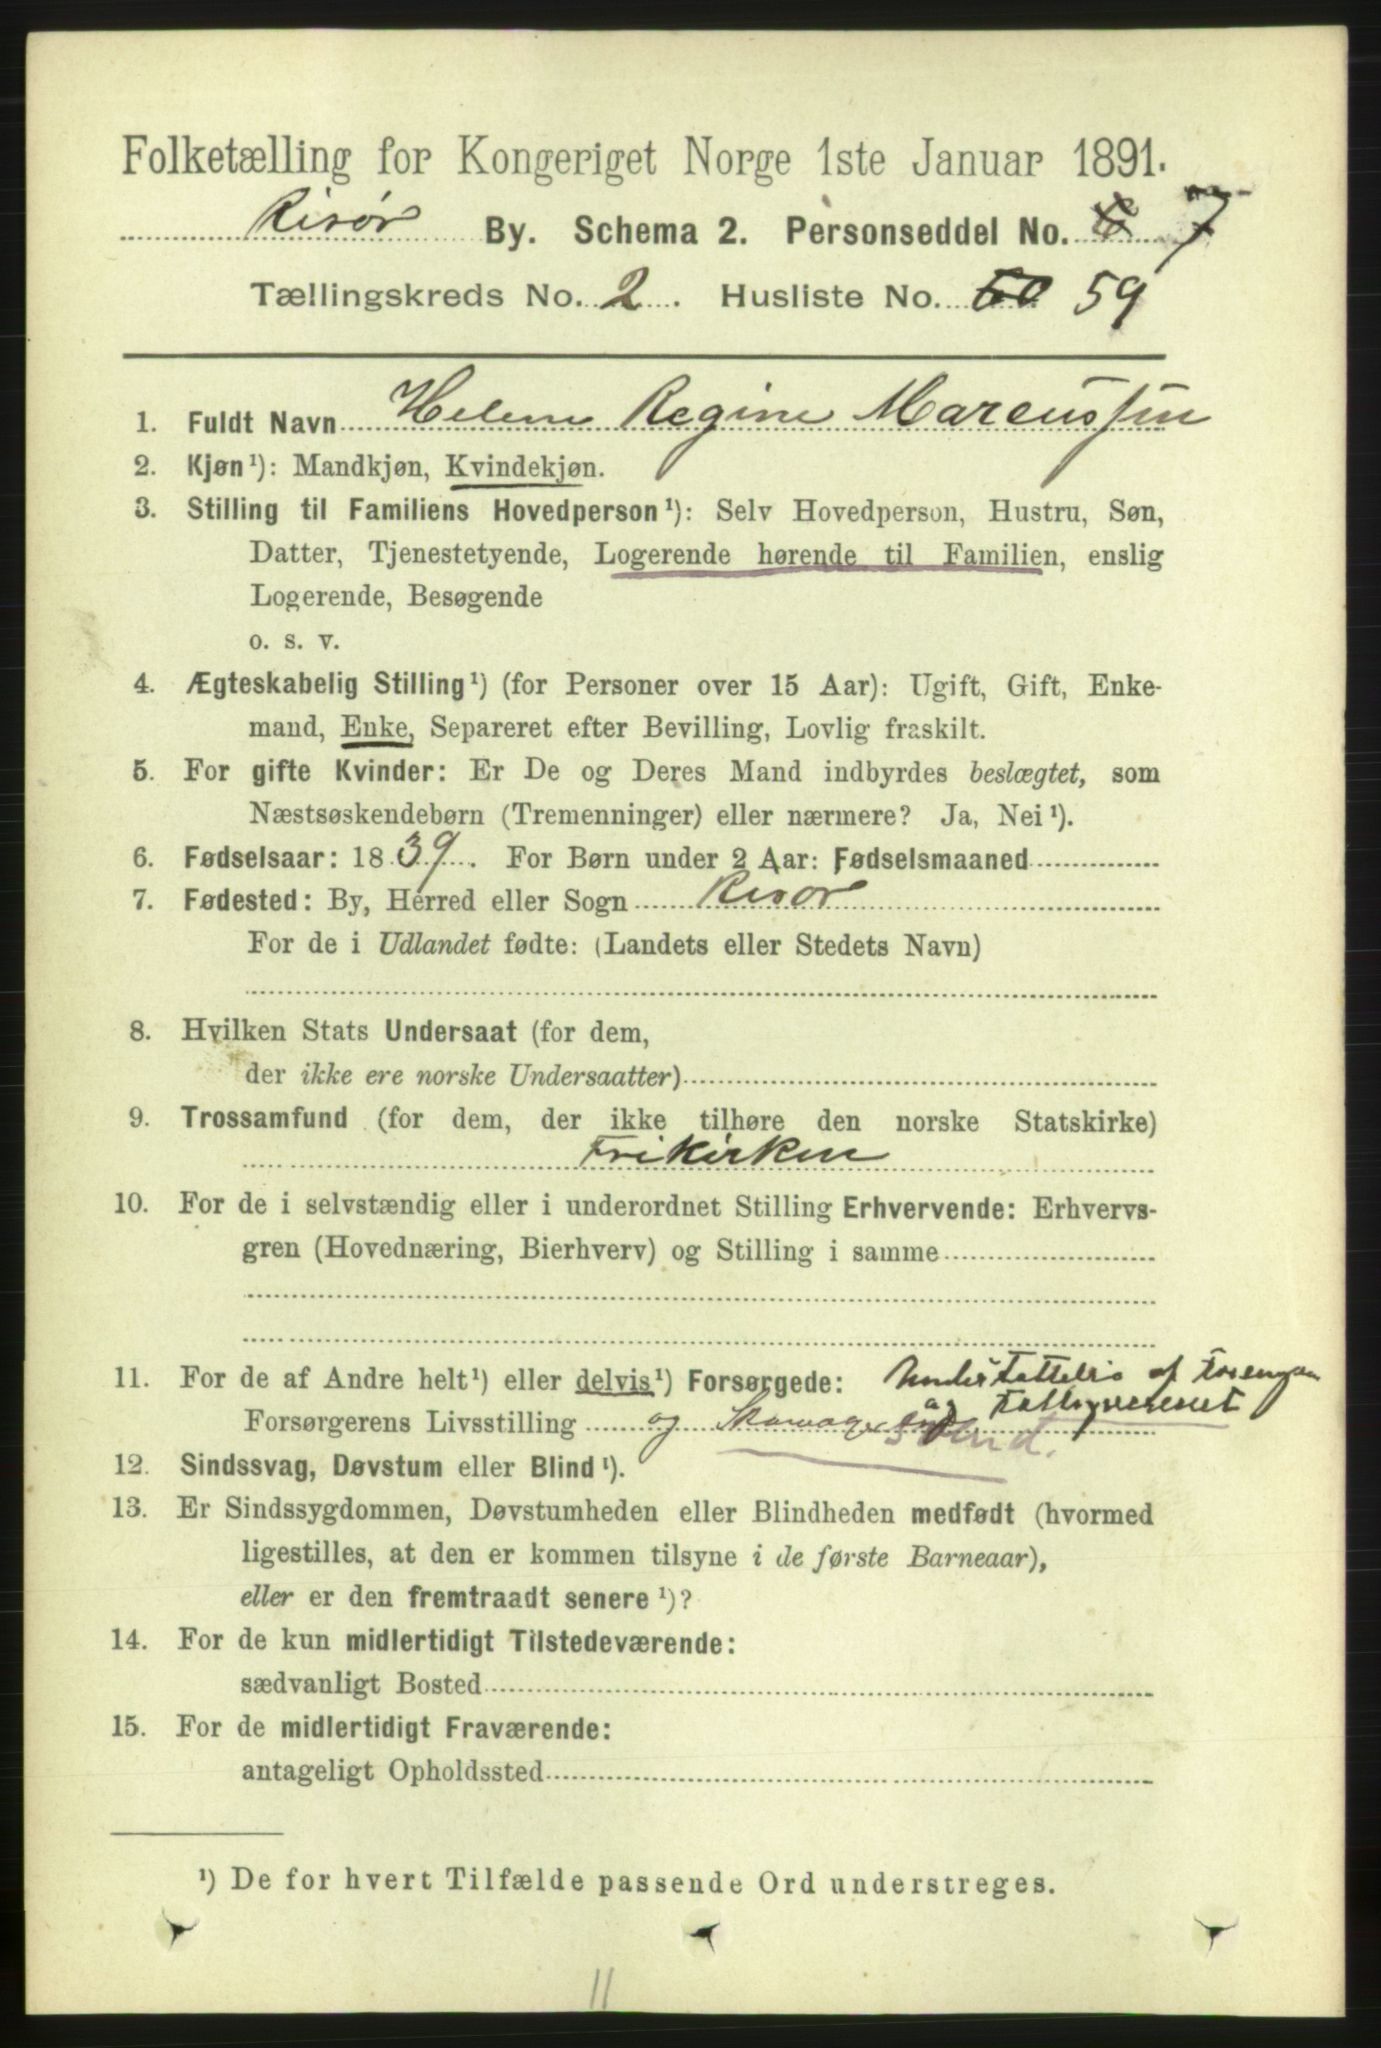 Folketælling for Kongeriget Norge 1ste Januar 1891.
Risør By. Schema 2. Personseddel No. 7
Tællingskreds No. 2. Husliste No. 60 59
1. Fuldt Navn Helene Regine Marcussen
2. Kjøn¹): Mandkjøn, Kvindekjøn.
3. Stilling til Familiens Hovedperson¹): Selv Hovedperson, Hustru, Søn,
Datter, Tjenestetyende, Logerende hørende til Familien, enslig
Logerende, Besøgende
o. s. v.
4. Ægteskabelig Stilling¹) (for Personer over 15 Aar): Ugift, Gift, Enke-
mand, Enke, Separeret efter Bevilling, Lovlig fraskilt.
5. For gifte Kvinder: Er De og Deres Mand indbyrdes beslægtet, som
Næstsøskendebørn (Tremenninger) eller nærmere? Ja, Nei¹).
6. Fødselsaar: 1839. For Børn under 2 Aar: Fødselsmaaned
7. Fødested: By, Herred eller Sogn Risør
For de i Udlandet fødte: (Landets eller Stedets Navn)
8. Hvilken Stats Undersaat (for dem,
der ikke ere norske Undersaatter)
9. Trossamfund (for dem, der ikke tilhøre den norske Statskirke)
Frikirken
10. For de i selvstændig eller i underordnet Stilling Erhvervende: Erhvervs-
gren (Hovednæring, Bierhverv) og Stilling i samme
11. For de af Andre helt¹) eller delvis¹) Forsørgede: af
Forsørgerens Livsstilling og
12. Sindssvag, Døvstum eller Blind¹).
13. Er Sindssygdommen, Døvstumheden eller Blindheden medfødt (hvormed
ligestilles, at den er kommen tilsyne i de første Barneaar),
eller er den fremtraadt senere¹)?
14. For de kun midlertidigt Tilstedeværende:
sædvanligt Bosted
15. For de midlertidigt Fraværende:
antageligt Opholdssted
¹) De for hvert Tilfælde passende Ord understreges.
11